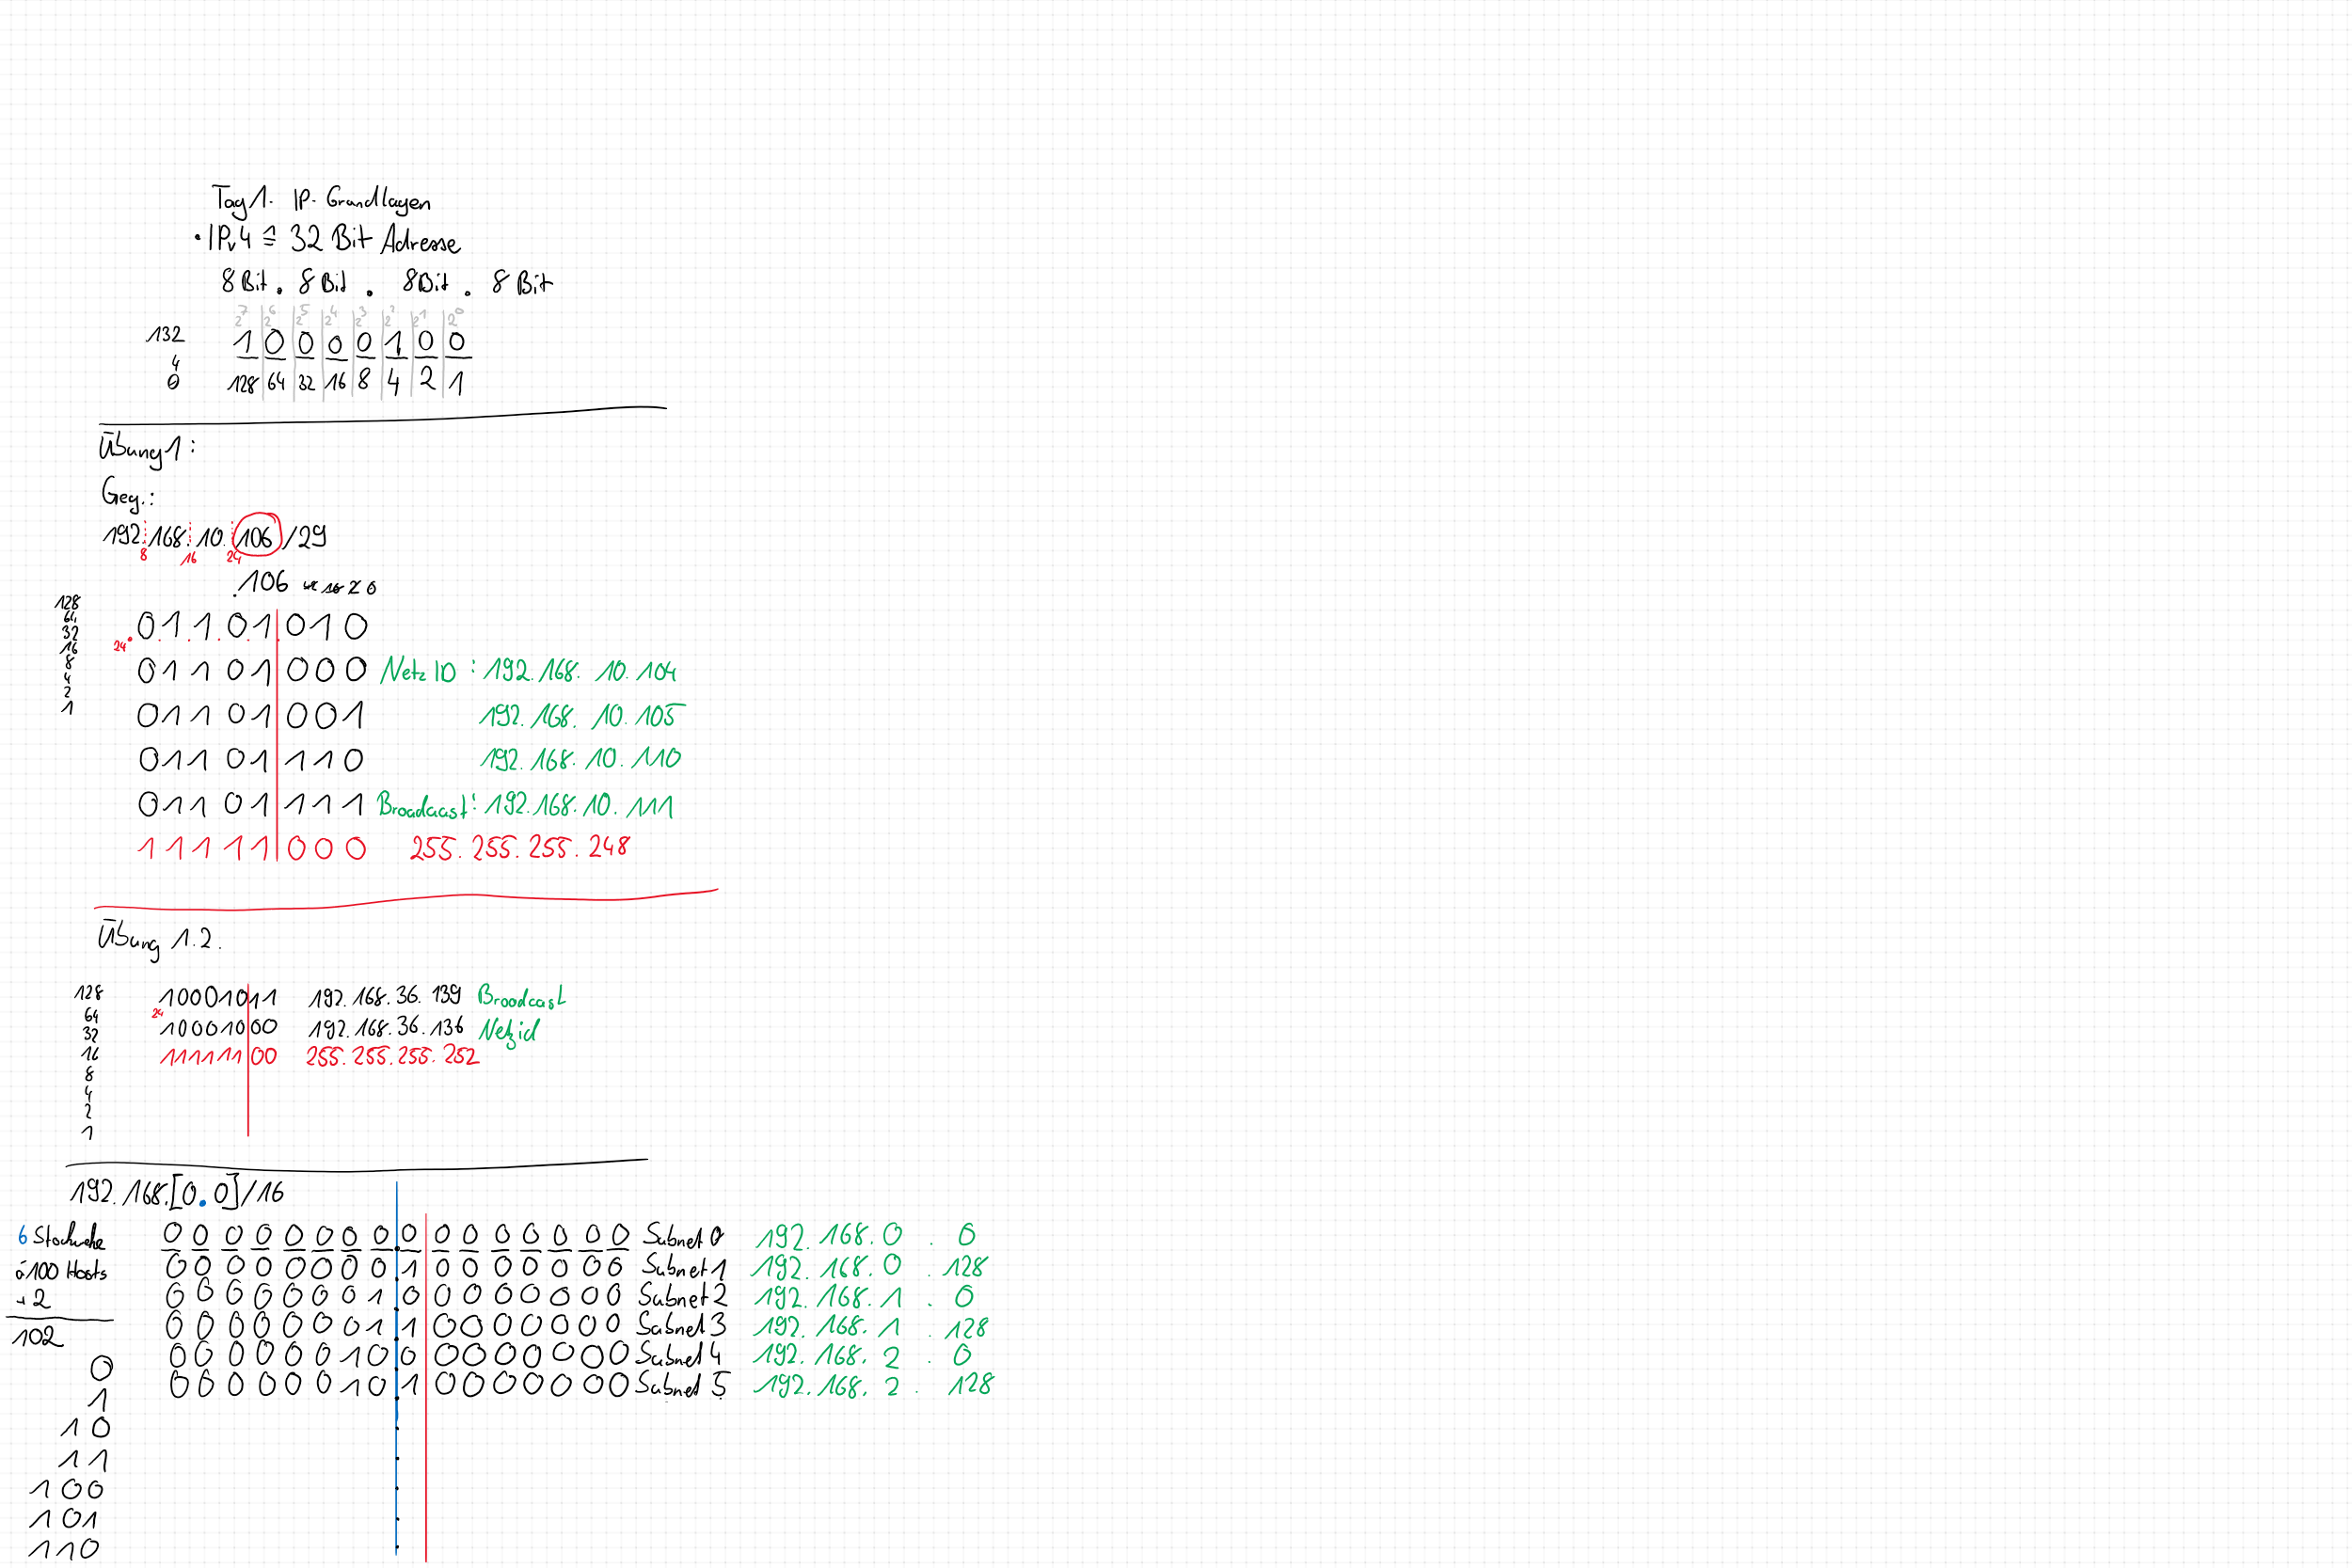 Tag 1. IP-Grundlagen
• IPv4 ≙ 32 Bit Adresse
8 Bit . 8 Bit . 8 Bit . 8 Bit
2⁷ 2⁶ 2⁵ 2⁴ 2³ 2² 2¹ 2⁰
132 1 0 0 0 0 1 0 0
4
0 128 64 32 16 8 4 2 1
Übung 1:
Geg.:
192.168.10.106 /29
8 16 24
.106
128
64
32
16
8
4
2
1
24
0 1 1 0 1 0 1 0
0 1 1 0 1 0 0 0 Netz ID : 192.168.10.104
0 1 1 0 1 0 0 1 192.168.10.105
0 1 1 0 1 1 1 0 192.168.10.110
0 1 1 0 1 1 1 1 Broadcast: 192.168.10.111
1 1 1 1 1 0 0 0 255.255.255.248
Übung 1.2.
128
64
32
16
8
4
2
1
10001011 192.168.36.139 Broadcast
24
10001000 192.168.36.136 Netzid
11111100 255.255.255.252
192.168.[0.0]/16
6 Stockwerke
á 100 Hosts
+ 2
102
0 0 0 0 0 0 0 0 0 0 0 0 0 0 0 0 Subnet 0 192.168.0.0
0 0 0 0 0 0 0 0 1 0 0 0 0 0 0 0 Subnet 1 192.168.0.128
0 0 0 0 0 0 0 1 0 0 0 0 0 0 0 0 Subnet 2 192.168.1.0
0 0 0 0 0 0 0 1 1 0 0 0 0 0 0 0 Subnet 3 192.168.1.128
0 0 0 0 0 0 1 0 0 0 0 0 0 0 0 0 Subnet 4 192.168.2.0
0 0 0 0 0 0 1 0 1 0 0 0 0 0 0 0 Subnet 5 192.168.2.128
0
1
10
11
100
101
110